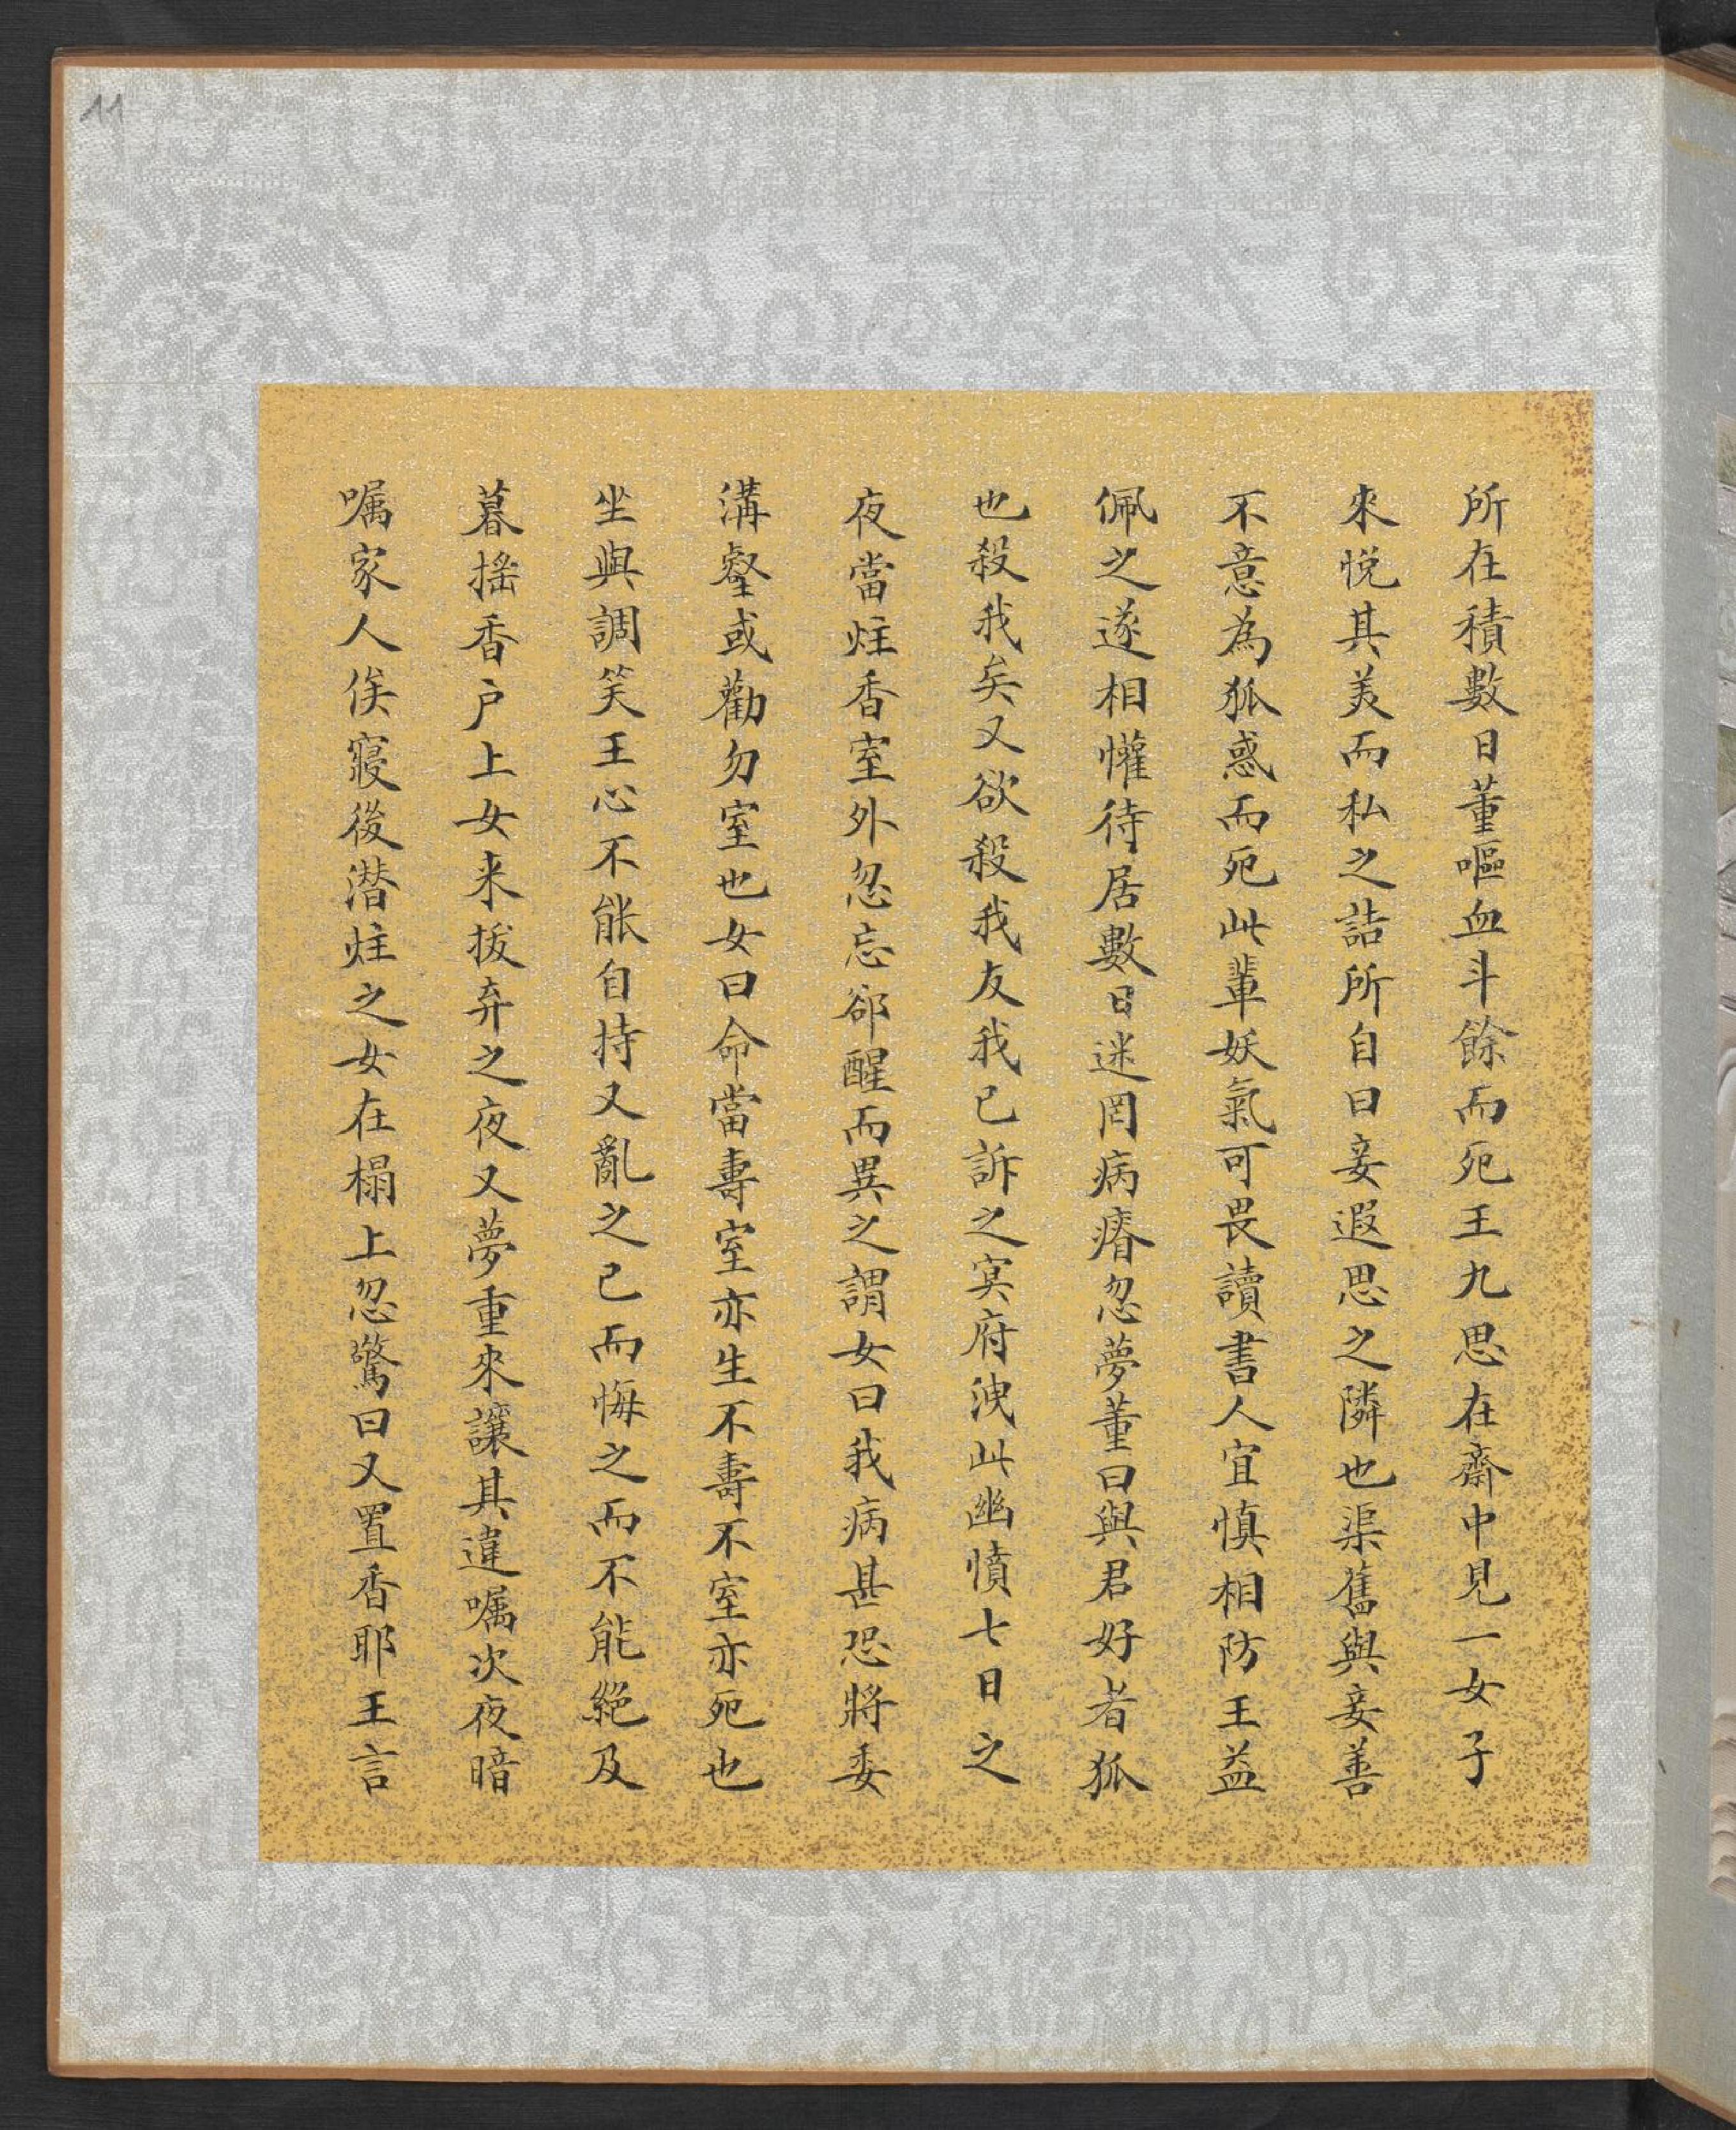 11
所在積數日董嘔血斗餘而死王九思在齋中見一女子
來悦其美而私之詰所自曰妾遐思之隣也渠舊與妾善
不意為狐惑而死此輩妖氣可畏讀書人宜慎相防王益
佩之遂相懽待居數日迷罔病瘠忽夢董曰與君好者狐
也殺我矣又欲殺我友我已訴之冥府洩此幽憤七日之
夜當炷香室外忽忘郤醒而異之謂女曰我病甚恐將委
溝壑或勸勿室也女曰命當壽室亦生不壽不室亦死也
坐與調笑王心不能自持又亂之已而悔之而不能絕及
暮揺香戶上女来拔弃之夜又夢重來讓其違嘱次夜暗
嘱家人俟寢後潛炷之女在榻上忽驚曰又置香耶王言